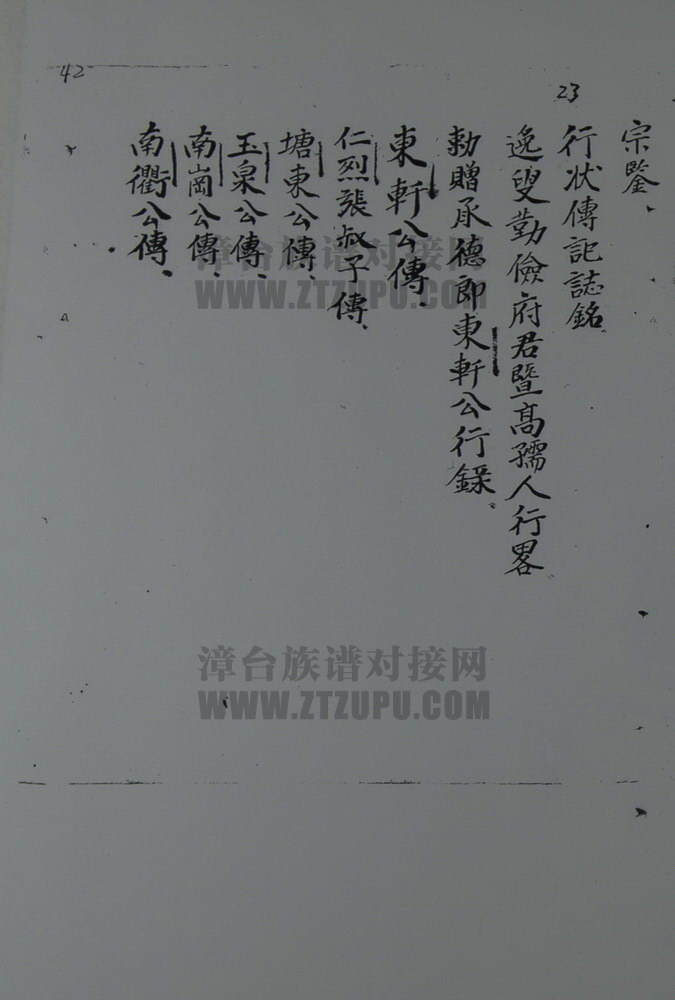 42
23
宗鑒、
行状傳記誌銘、
逸叟勤儉府君暨高孺人行畧
勅贈承德郎東軒公行錄、
東軒公傳、
仁烈張叔子傳、
塘東公傳、
玉泉公傳、
南崗公傳、
南衢公傳、
漳台族谱对接网
WWW.ZTZUPU.COM
漳台族谱对接网
WWW.ZTZUPU.COM